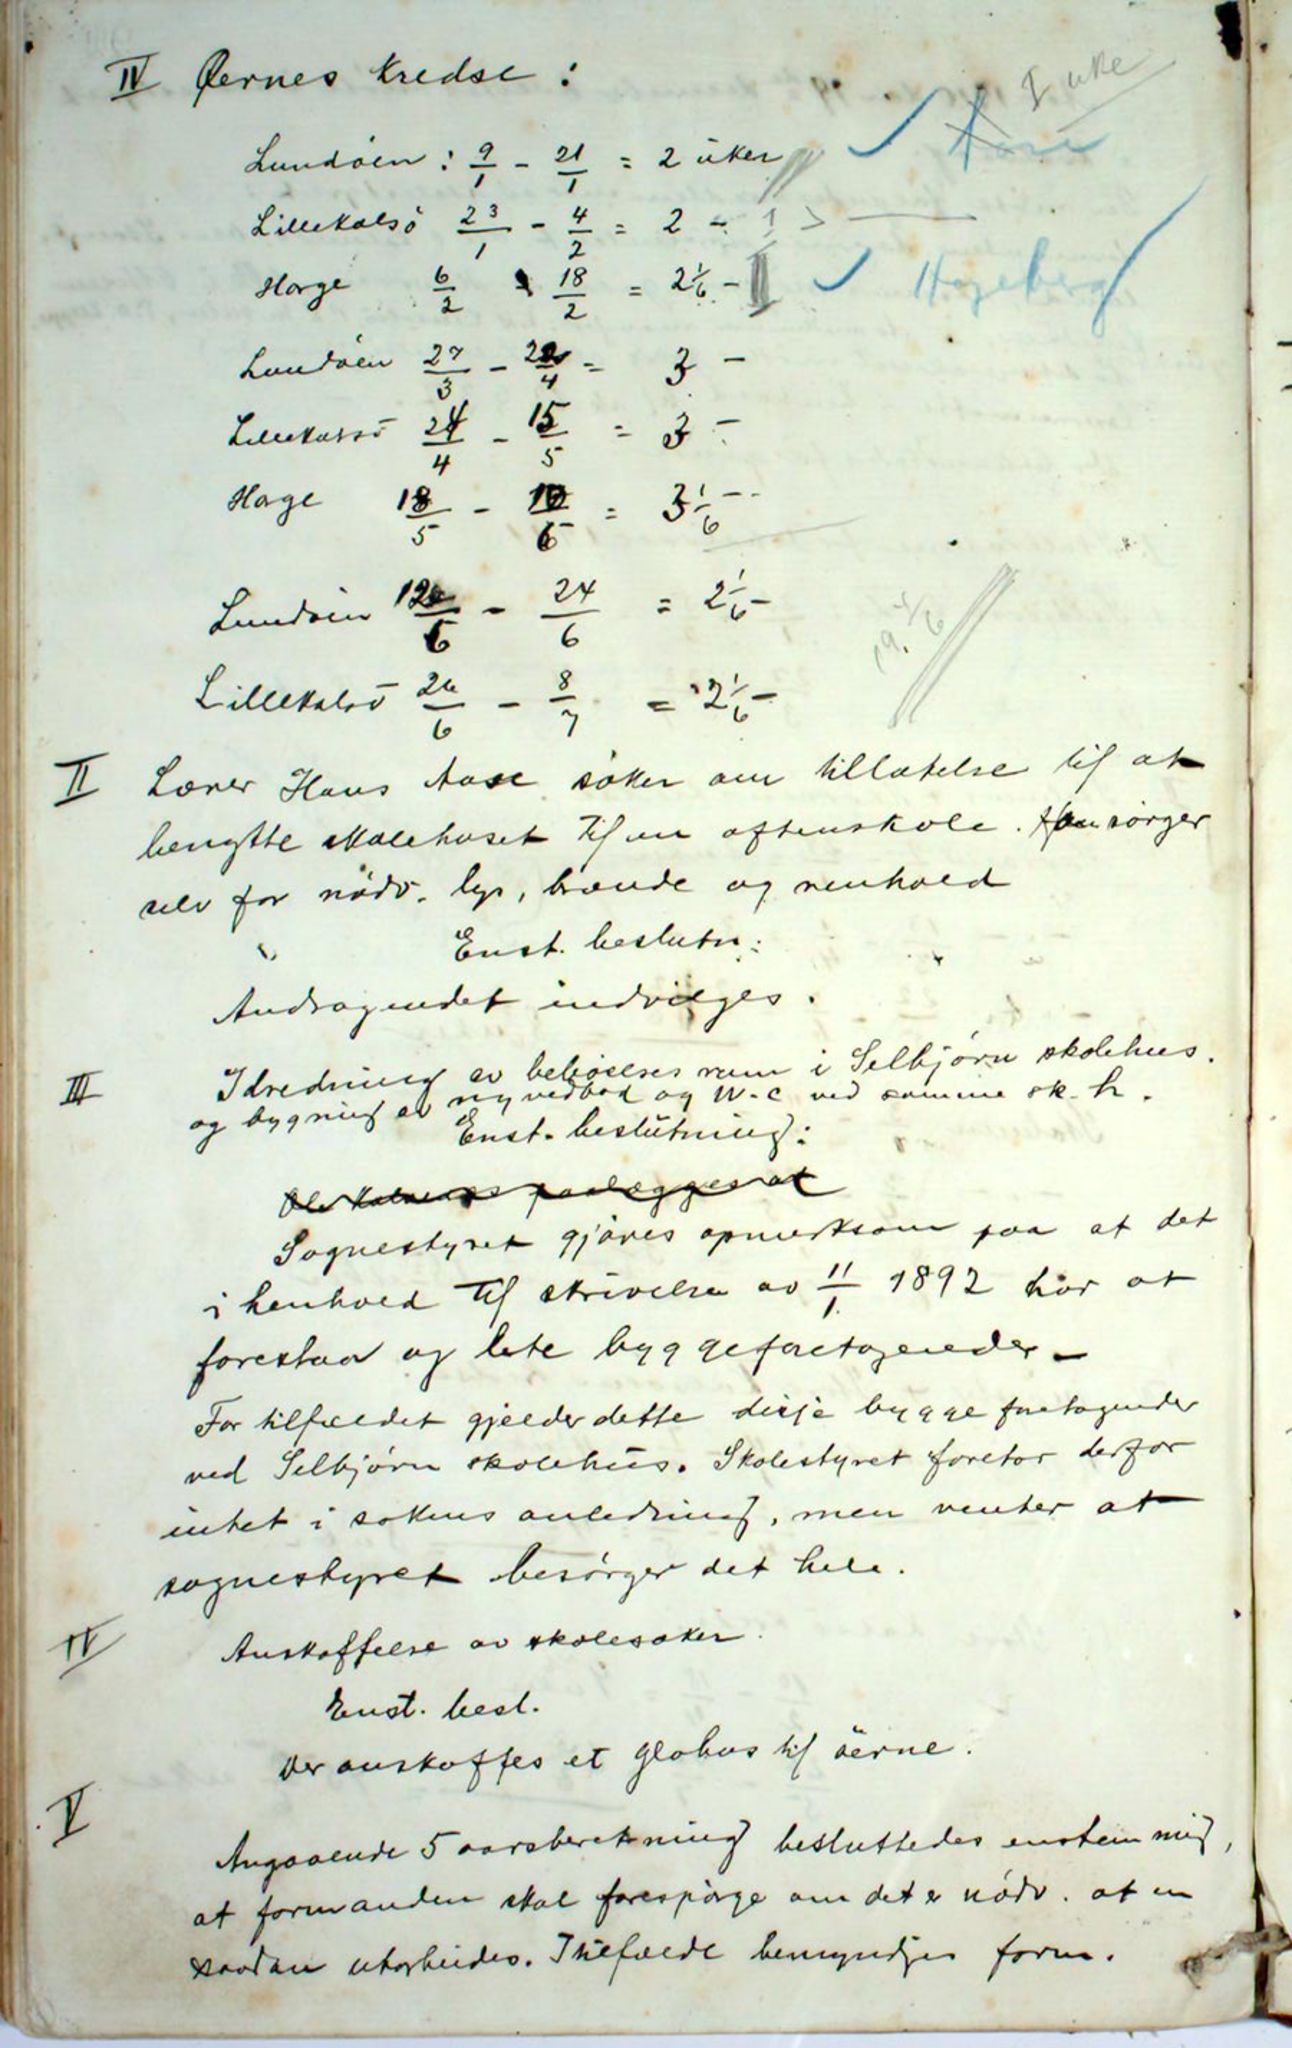 IV Øernes Kredse :
I uke
Lundöen : 9/1 - 21/1 = 2 uker Aase
Lillekalsö 23/1 - 4/2 = 2 - 1
Horge 6/2 - 18/2 = 2 1/6 - Hageberg
Lundöen 27/3 - /4 = 3 -
Lillekalsö 24/4 - 15/5 = 3 -
Horge 18/5 - 10/6 = 3 1/6 -
Lundöen 12/6 - 24/6 = 2 1/6 -
19. 1/6
Lillekalsö 26/6 - 8/7 = 2 1/6 -
II Lærer Hans Aase söker om tillatelse til at
benytte skolehuset til en aftenskole. Han sörger
selv for nödv. lys, brænde og renhold
Enst. beslutn:
Andragendet indvilges.
III Idredning av beliöseses rum i Selbjörn skolehus.
og bygning av ny vedbod og W-c ved samme sk. h.
Enst. beslutning:
paalægges at
Sognestyret gjöres opmerksom paa at det
i henhold til skrivelse av 11/1. 1892 har at
forestaa og lete byggeforetagender -
For tilfældet gjelder dette disje byggeforetagender
ved Selbjörn skolehus. Skolestyret foretar derfor
intet i sakens anledning, men venter at
sognestyret besörger det hele.
IV Anskaffelse av skolesaker.
Enst. besl.
Der anskaffes et globus til öerne.
V
Angaaende 5 aarsberetning besluttedes enstemmig,
at formanden skal forespörge om det er nödv. at en
saadan utarbeides. I tilfælde bemyndiges form.